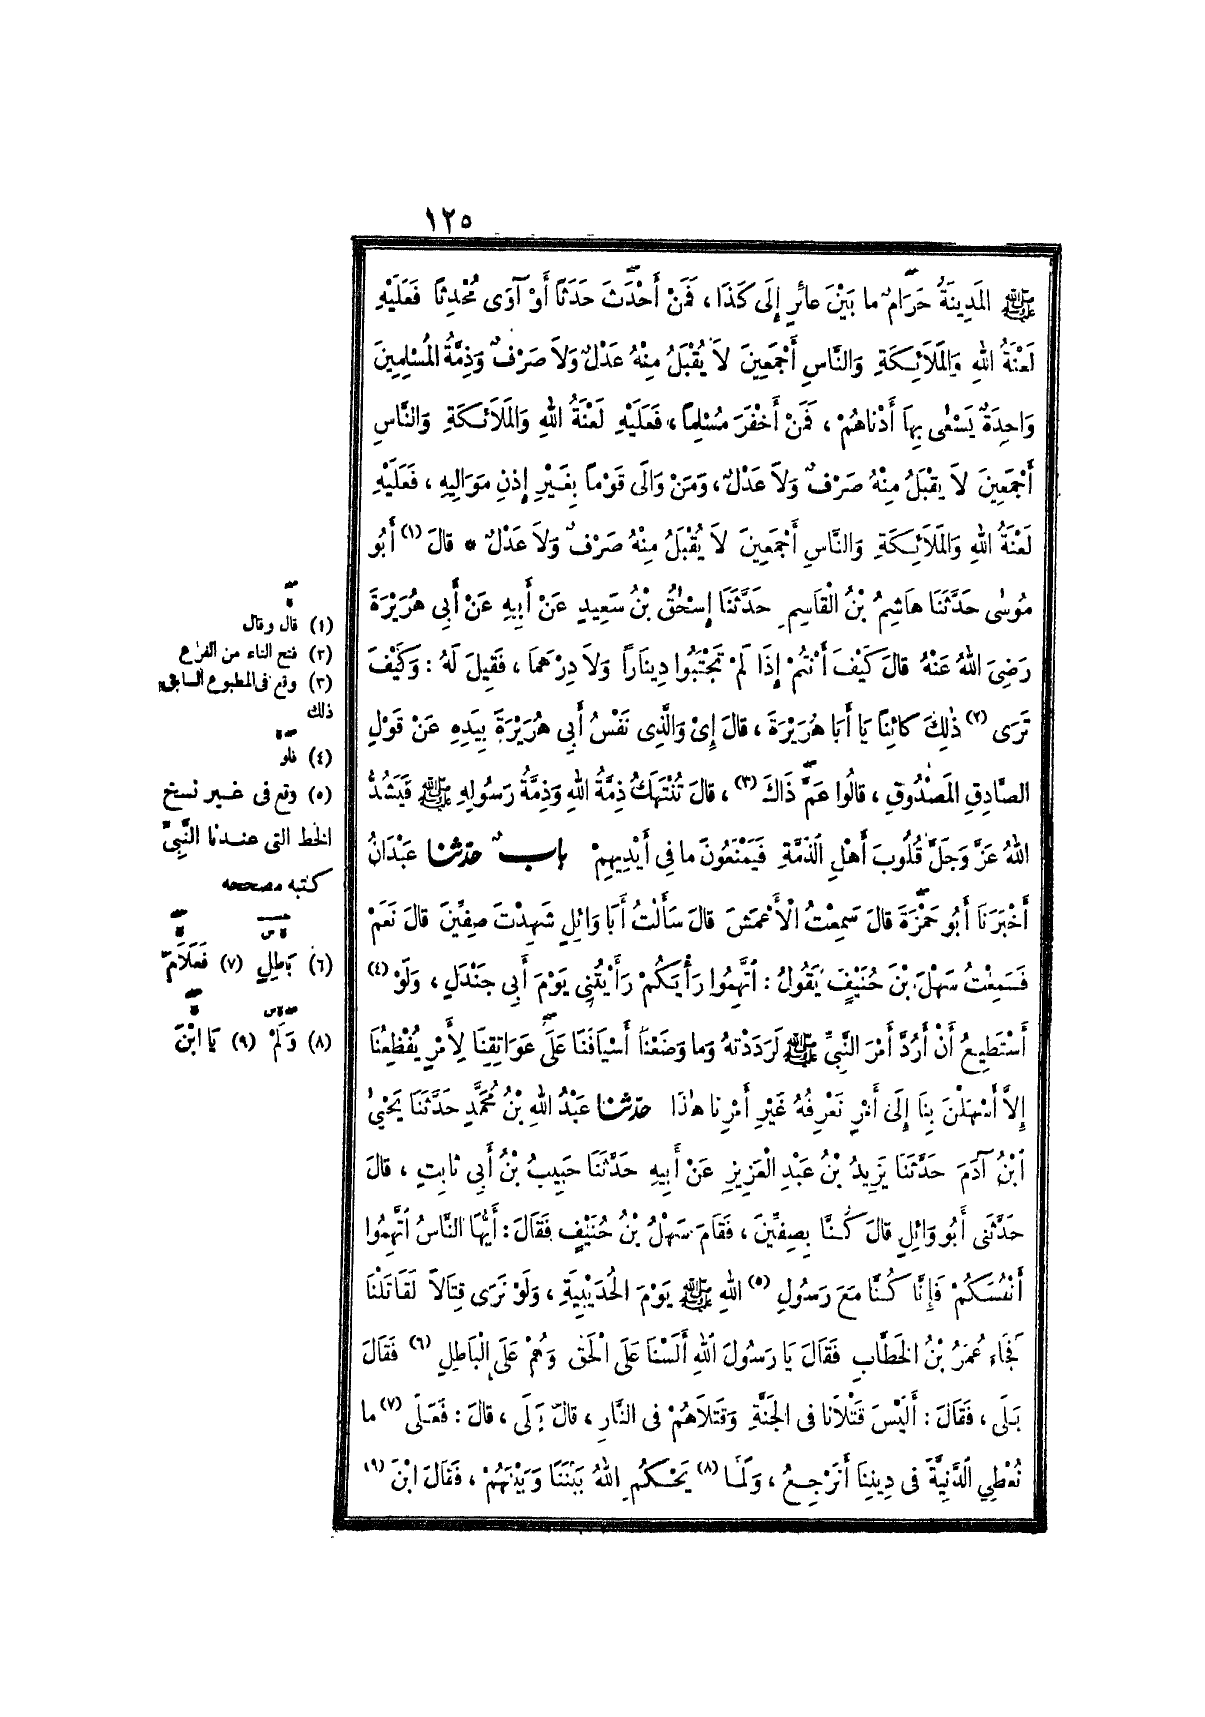 ١٢٥
ﷺ المَدِينَةُ حَرَامٌ ما بَيْنَ عائِرٍ إِلَى كَذَا ، فَمَنْ أَحْدَثَ حَدَثًا أَوْ آوَى مُحْدِثًا فَعَلَيْهِ
لَعْنَةُ اللهِ وَالمَلَائِكَةِ وَالنَّاسِ أَجْمَعِينَ لَا يُقْبَلُ مِنْهُ عَدْلٌ وَلَا صَرْفٌ وَذِمَّةُ المُسْلِمِينَ
وَاحِدَةٌ يَسْعٰى بِهَا أَدْنَاهُمْ ، فَمَنْ أَخْفَرَ مُسْلِمًا ، فَعَلَيْهِ لَعْنَةُ اللهِ وَالمَلَائِكَةِ وَالنَّاسِ
أَجْمَعِينَ لَا يُقْبَلُ مِنْهُ صَرْفٌ وَلَا عَدْلٌ ، وَمَنْ وَالَى قَوْمًا بِغَيْرِ إِذْنِ مَوَالِيهِ ، فَعَلَيْهِ
لَعْنَةُ اللهِ وَالمَلَائِكَةِ وَالنَّاسِ أَجْمَعِينَ لَا يُقْبَلُ مِنْهُ صَرْفٌ وَلَا عَدْلٌ * قالَ (١) أَبُو
مُوسٰى حَدَّثَنَا هَاشِمُ بْنُ الْقَاسِمِ حَدَّثَنَا إِسْحٰقُ بْنُ سَعِيدٍ عَنْ أَبِيهِ عَنْ أَبِي هُرَيْرَةَ
رَضِيَ اللهُ عَنْهُ قالَ كَيْفَ أَنْتُمْ إِذَا لَمْ تَجْتَبُوا دِينَارًا وَلَا دِرْهَمًا ، فَقِيلَ لَهُ : وَكَيْفَ
تَرَى (٢) ذٰلِكَ كائِنًا يَا أَبَا هُرَيْرَةَ ، قالَ إِي وَالَّذِي نَفْسُ أَبِي هُرَيْرَةَ بِيَدِهِ عَنْ قَوْلِ
الصَّادِقِ المَصْدُوقِ ، قالُوا عَمَّ ذَاكَ (٣) ، قالَ تُنْتَهَكُ ذِمَّةُ اللهِ وَذِمَّةُ رَسُولِهِ ﷺ فَيَشُدُّ
اللهُ عَزَّ وَجَلَّ قُلُوبَ أَهْلِ الذِّمَّةِ فَيَمْنَعُونَ ما فِي أَيْدِيهِمْ بابٌ حدثنا عَبْدَانُ
أَخْبَرَنَا أَبُو حَمْزَةَ قالَ سَمِعْتُ الْأَعْمَشَ قالَ سَأَلْتُ أَبَا وَائِلٍ شَهِدْتَ صِفِّينَ قالَ نَعَمْ
فَسَمِعْتُ سَهْلَ بْنَ حُنَيْفٍ يَقُولُ : اتَّهِمُوا رَأْيَكُمْ رَأَيْتُنِي يَوْمَ أَبِي جَنْدَلٍ ، وَلَوْ (٤)
أَسْتَطِيعُ أَنْ أَرُدَّ أَمْرَ النَّبِيِّ ﷺ لَرَدَدْتُهُ وَما وَضَعْنَا أَسْيَافَنَا عَلَى عَوَاتِقِنَا لِأَمْرٍ يُفْظِعُنَا
إِلَّا أَسْهَلْنَ بِنَا إِلَى أَمْرٍ نَعْرِفُهُ غَيْرِ أَمْرِنَا هٰذَا حدثنا عَبْدُ اللهِ بْنُ مُحَمَّدٍ حَدَّثَنَا يَحْيٰى
ابْنُ آدَمَ حَدَّثَنَا يَزِيدُ بْنُ عَبْدِ الْعَزِيزِ عَنْ أَبِيهِ حَدَّثَنَا حَبِيبُ بْنُ أَبِي ثَابِتٍ ، قالَ
حَدَّثَنِي أَبُو وَائِلٍ قالَ كُنَّا بِصِفِّينَ ، فَقَامَ سَهْلُ بْنُ حُنَيْفٍ فَقَالَ : أَيُّهَا النَّاسُ اتَّهِمُوا
أَنْفُسَكُمْ فَإِنَّا كُنَّا مَعَ رَسُولِ (٥) اللهِ ﷺ يَوْمَ الحُدَيْبِيَةِ ، وَلَوْ نَرَى قِتَالًا لَقَاتَلْنَا
فَجَاءَ عُمَرُ بْنُ الخَطَّابِ فَقَالَ يَا رَسُولَ اللهِ أَلَسْنَا عَلَى الْحَقِّ وَهُمْ عَلَى الْبَاطِلِ (٦) فَقَالَ
بَلَى ، فَقَالَ : أَلَيْسَ قَتْلَانَا فِي الجَنَّةِ وَقَتْلَاهُمْ فِي النَّارِ ، قالَ بَلَى ، قالَ : فَعَلَى (٧) ما
نُعْطِي الدَّنِيَّةَ فِي دِينِنَا أَنَرْجِعُ ، وَلَمَّا (٨) يَحْكُمِ اللهُ بَيْنَنَا وَبَيْنَهُمْ ، فَقَالَ ابْنَ (٩)
(١) قال وقال
(٢) فتح التاء من الفرع
(٣) وقع فى المطبوع السابق
ذلك
(٤) فلو
(٥) وقع فى غير نسخ
الخط التى عندنا النَّبِيِّ
كتبه مصححه
(٦) بَاطِلٍ (٧) فَعَلَامَ
(٨) وَلَمْ (٩) يَا ابْنَ